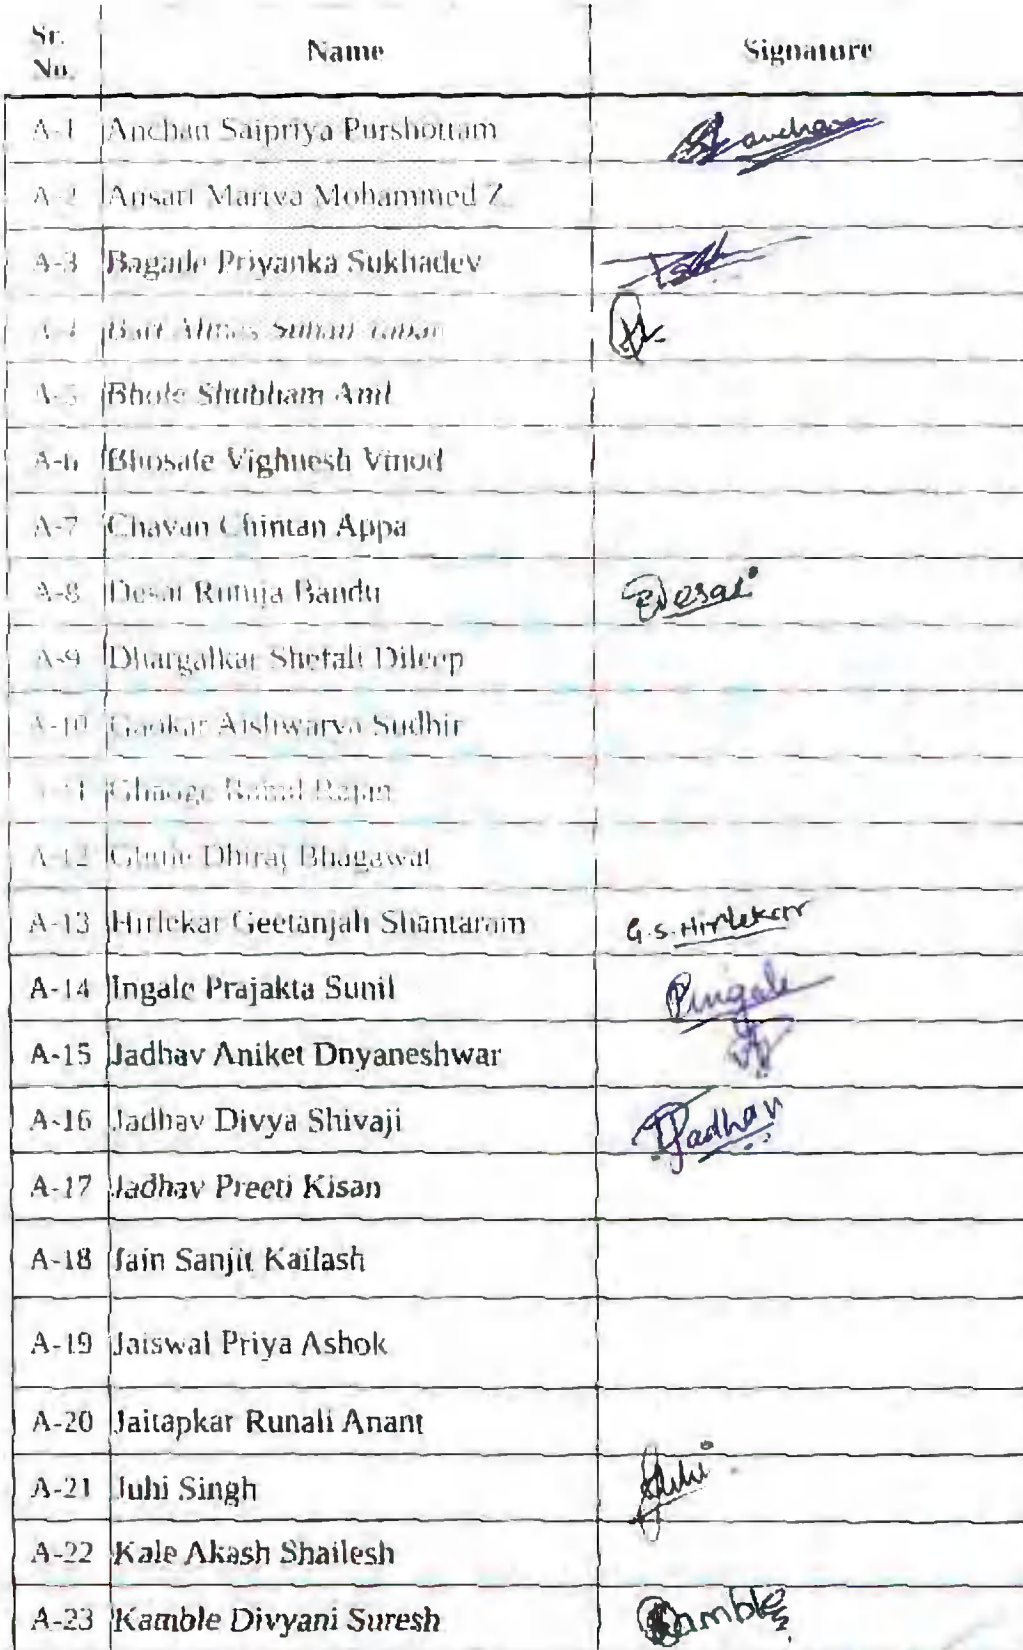 Sr. No. Name Signature
A-1 Anchan Saipriya Purshottam
A-2 Ansari Mariya Mohammed Z.
A-3 Bagade Priyanka Sukhadev
A-4 Bari
A-5 Bhole Shubham Anil
A-6 Bhosale Vighnesh Vinod
A-7 Chavan Chintan Appa
A-8 Desai Rutuja Bandu Desai
A-9 Dhargalkar Shefali Dileep
A-10 Gaokar Aishwarya Sudhir
A-11 Ghaoge
A-12 Dhiraj Bhagawat
A-13 Hirlekar Geetanjali Shantaram G.S. Hirlekar
A-14 Ingale Prajakta Sunil Pingale
A-15 Jadhav Aniket Dnyaneshwar
A-16 Jadhav Divya Shivaji Jadhav
A-17 Jadhav Preeti Kisan
A-18 Jain Sanjit Kailash
A-19 Jaiswal Priya Ashok
A-20 Jaitapkar Runali Anant
A-21 Juhi Singh Juhi
A-22 Kale Akash Shailesh
A-23 Kamble Divyani Suresh Kamble